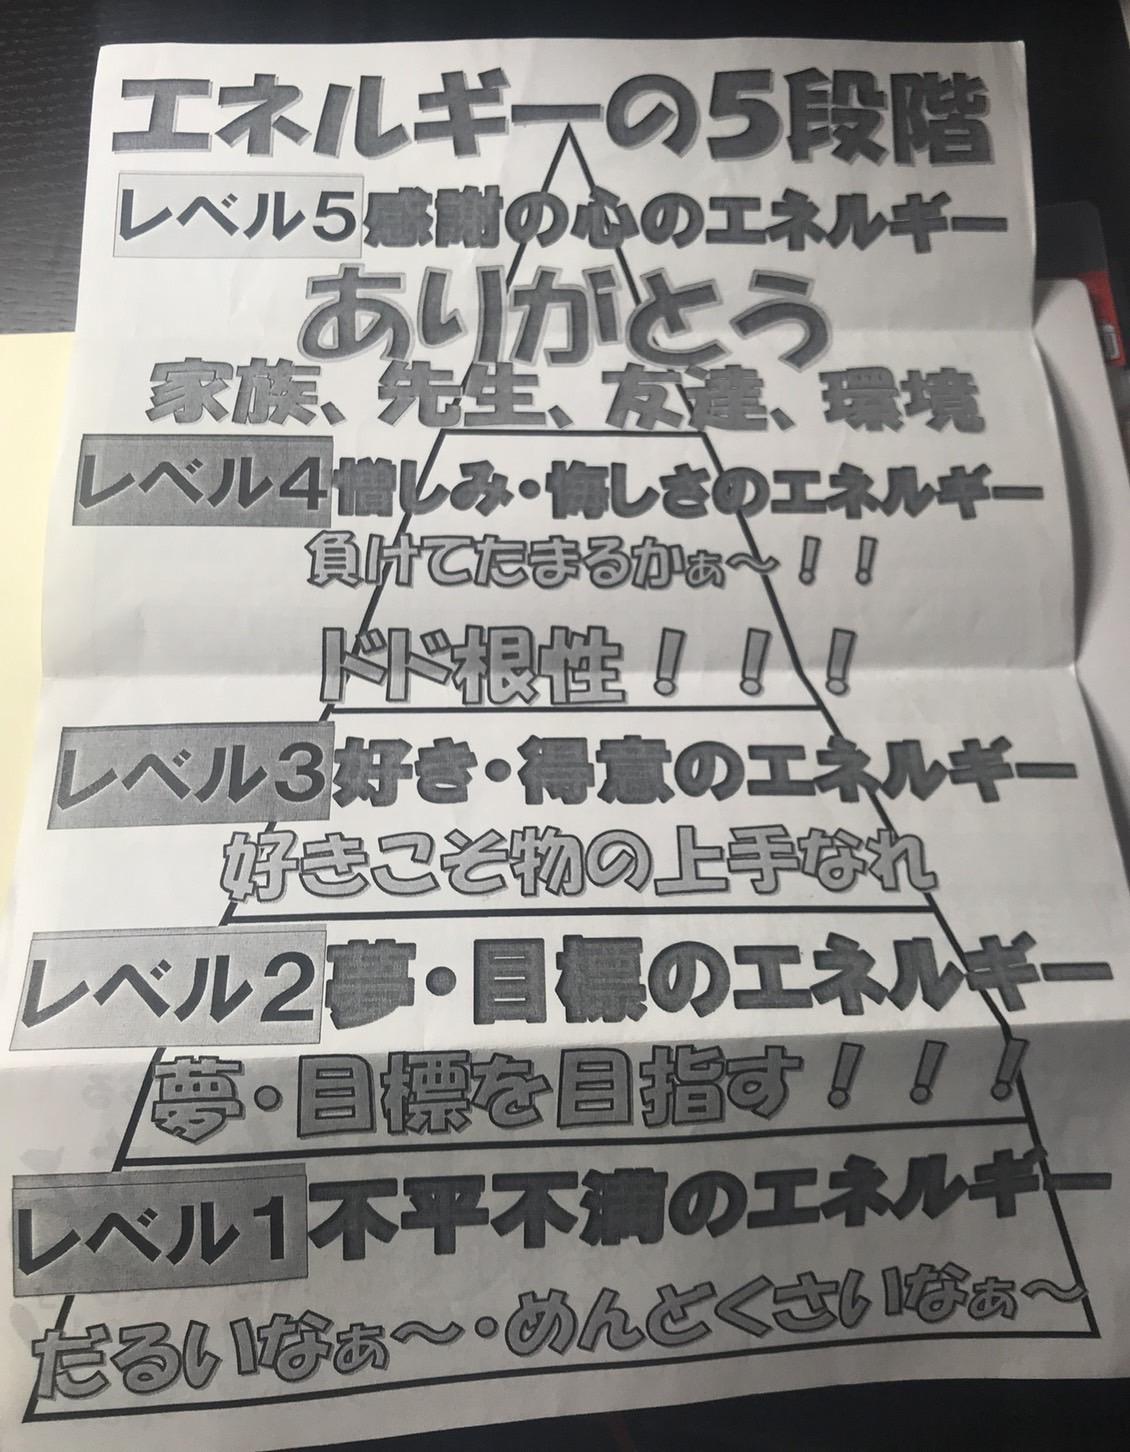 エネルギーの5段階
レベル5感謝の心のエネルギー
ありがとう
家族、先生、友達、環境
レベル4憎しみ・悔しさのエネルギー
負けてたまるかぁ～！！
ドド根性！！！
レベル3好き・得意のエネルギー
好きこそ物の上手なれ
レベル2夢・目標のエネルギー
夢・目標を目指す！！！
レベル1不平不満のエネルギー
だるいなぁ～・めんどくさいなぁ～